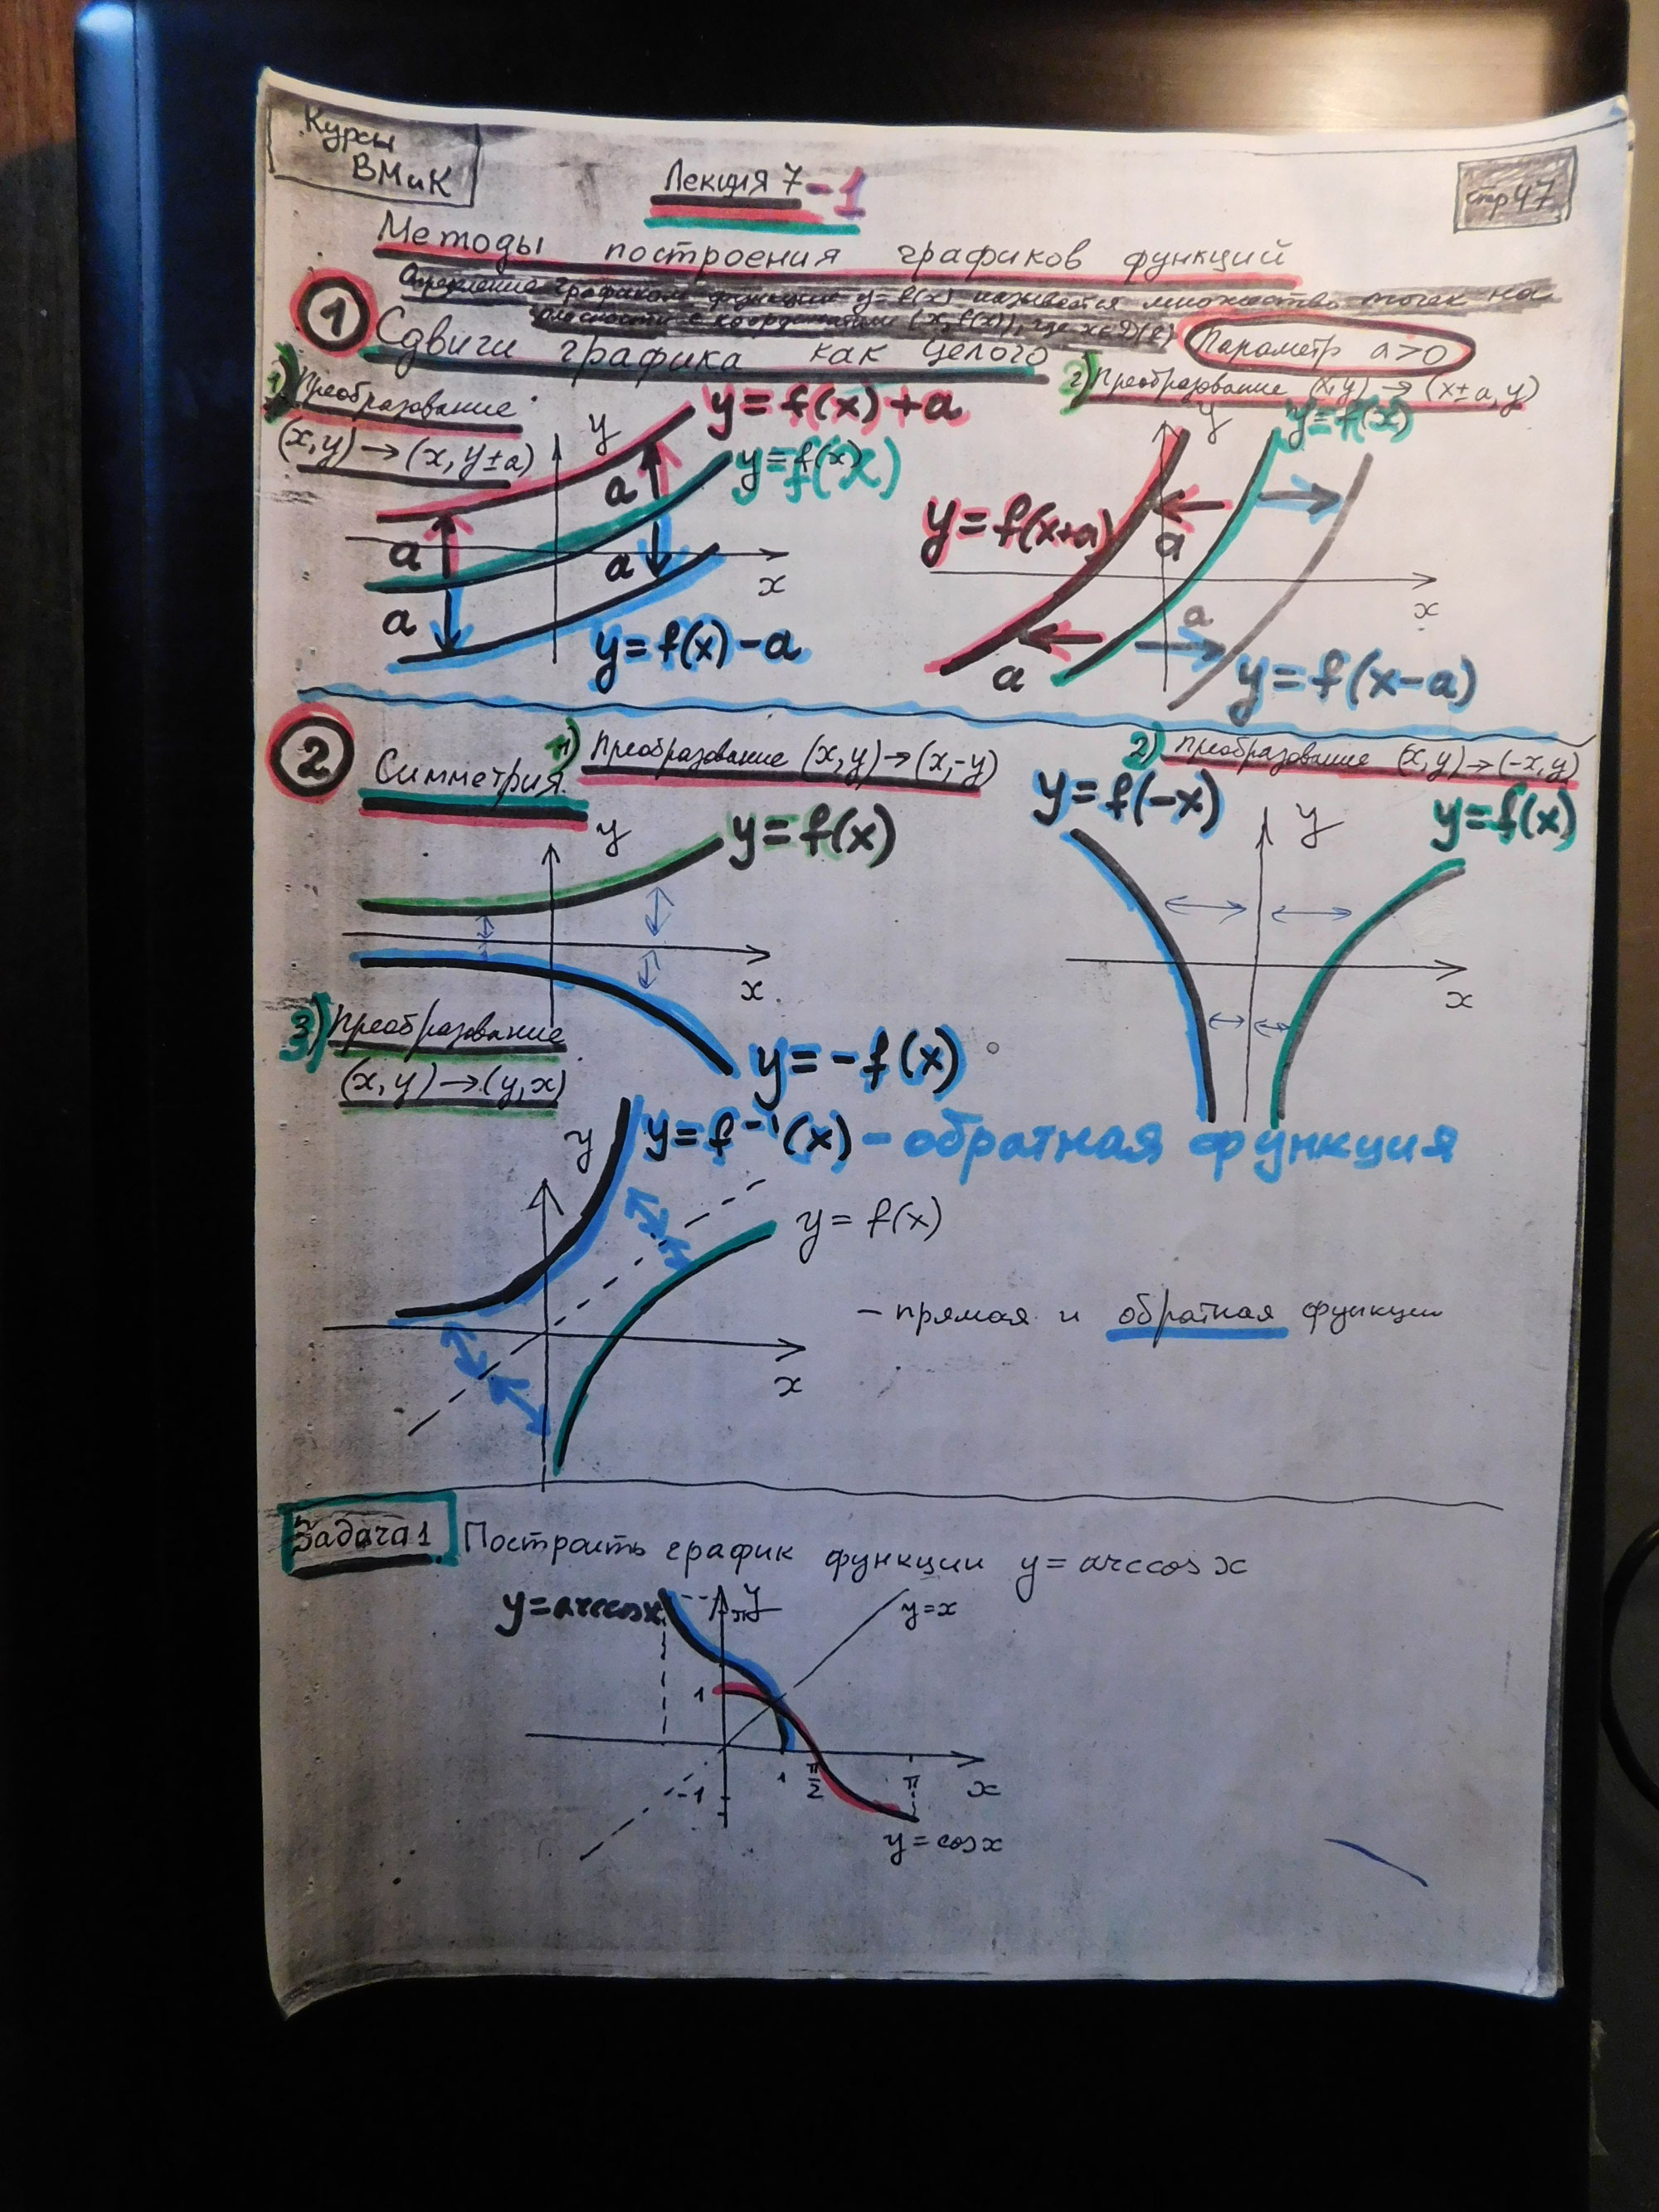 Курсы
ВМиК
Лекция 7-1
стр 47
Методы построения графиков функций
Определение графиком функции y=f(x) называется множество точек на
плоскости с координатами (x, f(x)), где x∈D(f)
1 Сдвиги графика как целого
Параметр a>0
1) Преобразование
(x,y)→(x,y±a)
2) Преобразование (x,y)→(x±a,y)
y=f(x)+a
y
y=f(x)
a
a
a
a
x
y=f(x)-a
y
y=f(x)
y=f(x+a)
a
x
a
a
y=f(x-a)
2 Симметрия.
1) Преобразование (x,y)→(x,-y)
2) Преобразование (x,y)→(-x,y)
y
y=f(x)
x
y=-f(x)
y=f(-x)
y
y=f(x)
x
3) Преобразование
(x,y)→(y,x)
y
y=f⁻¹(x) - обратная функция
y=f(x)
- прямая и обратная функции
x
Задача 1 Построить график функции y=arccos x
y=arccosx
π
y
y=x
1
1
π/2
π
x
-1
y=cosx